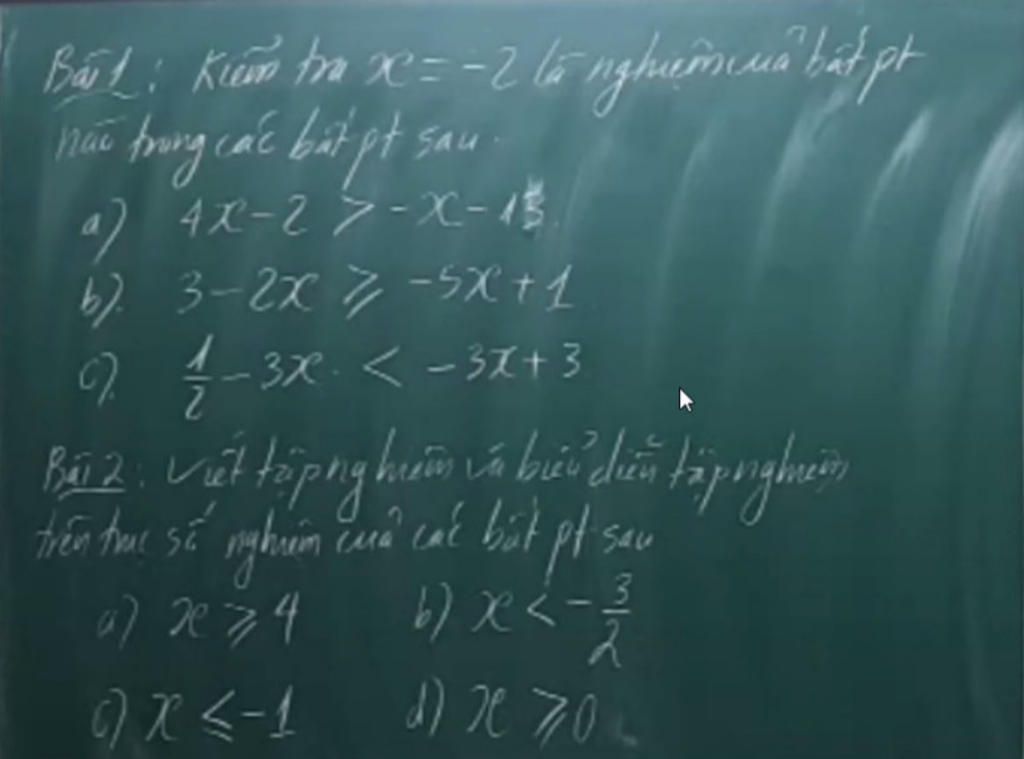 Bài 1: Kiểm tra x = -2 là nghiệm của bất pt
nào trong các bất pt sau.
a) 4x - 2 > -x - 13.
b). 3 - 2x ⩾ -5x + 1
c). 1/2 - 3x < -3x + 3
Bài 2: Viết tập nghiệm và biểu diễn tập nghiệm
trên trục số nghiệm của các bất pt sau
a) x ⩾ 4 b) x < -3/2
c) x ⩽ -1 d) x ⩾ 0